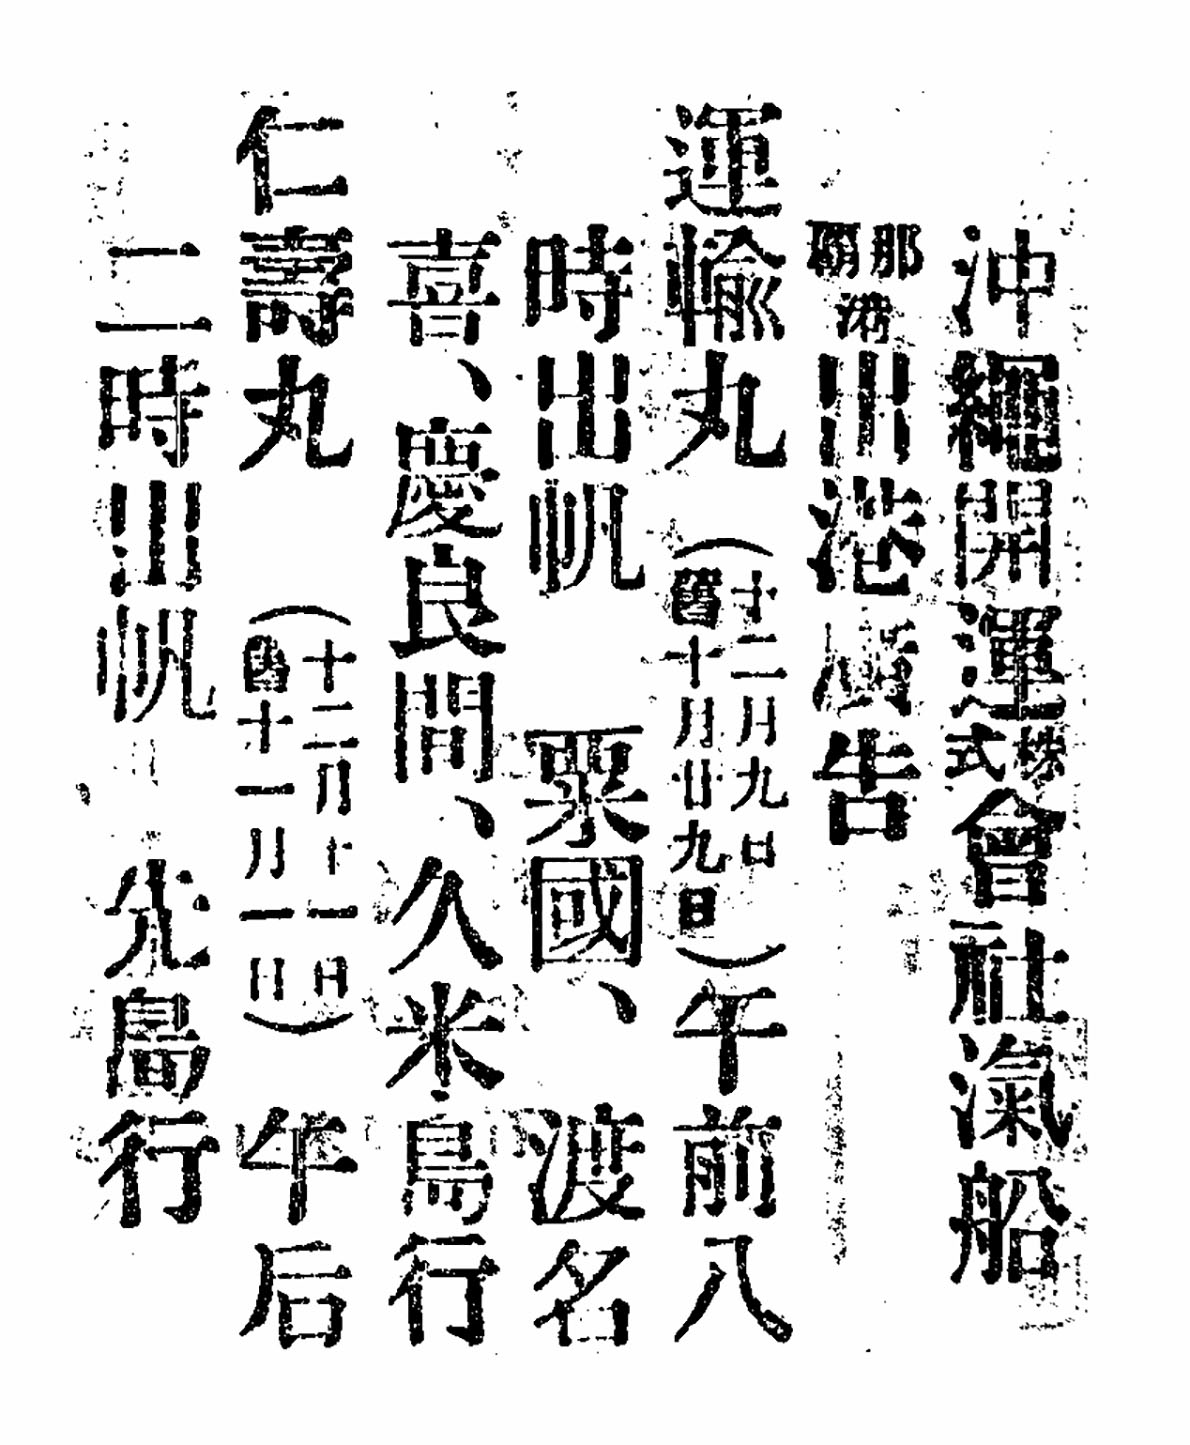 沖繩開運株式會社滊船
那覇港出港廣告
運輸丸（十二月九日舊十月廿九日）午前八
時出帆　粟國、渡名
喜、慶良間、久米島行
仁壽丸（十二月十一日舊十一月一日）午后
二時出帆　先島行